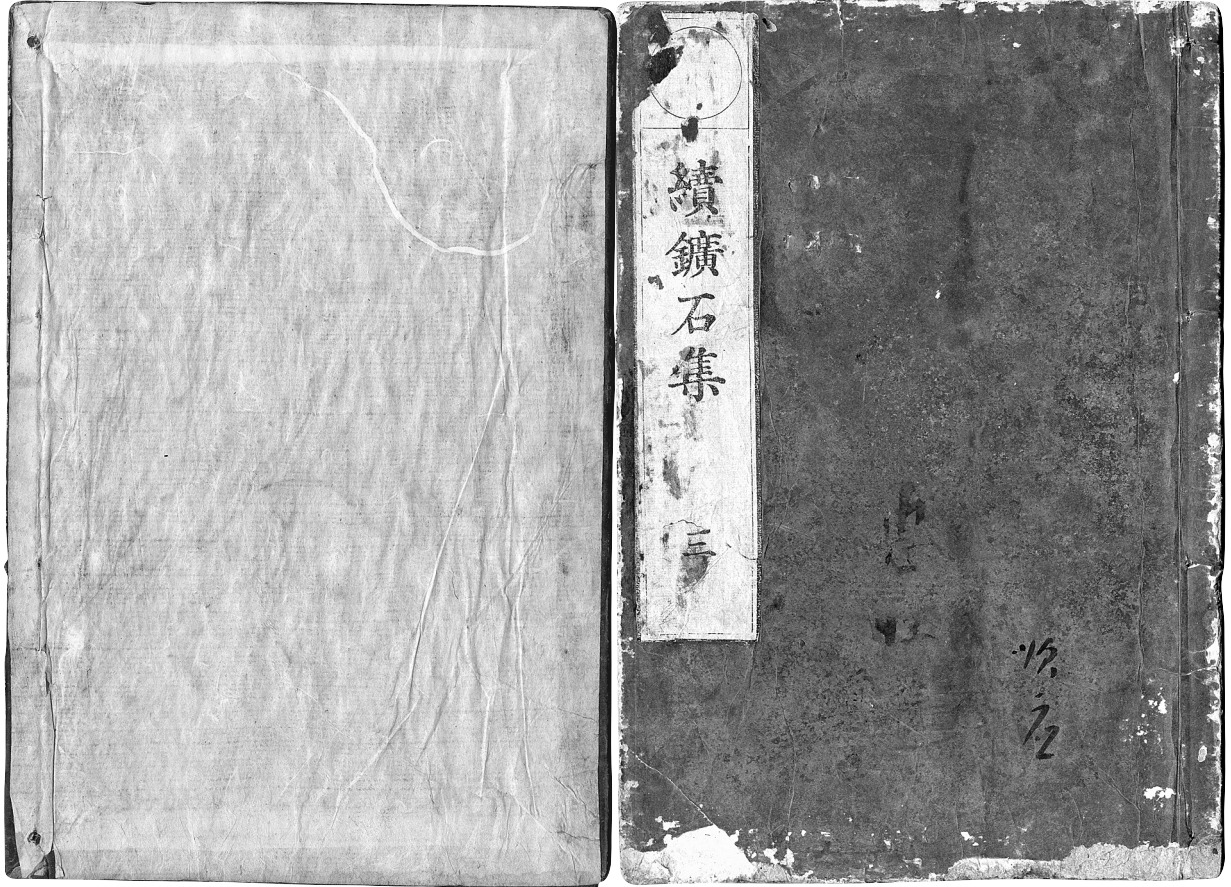 續鑛石集
三